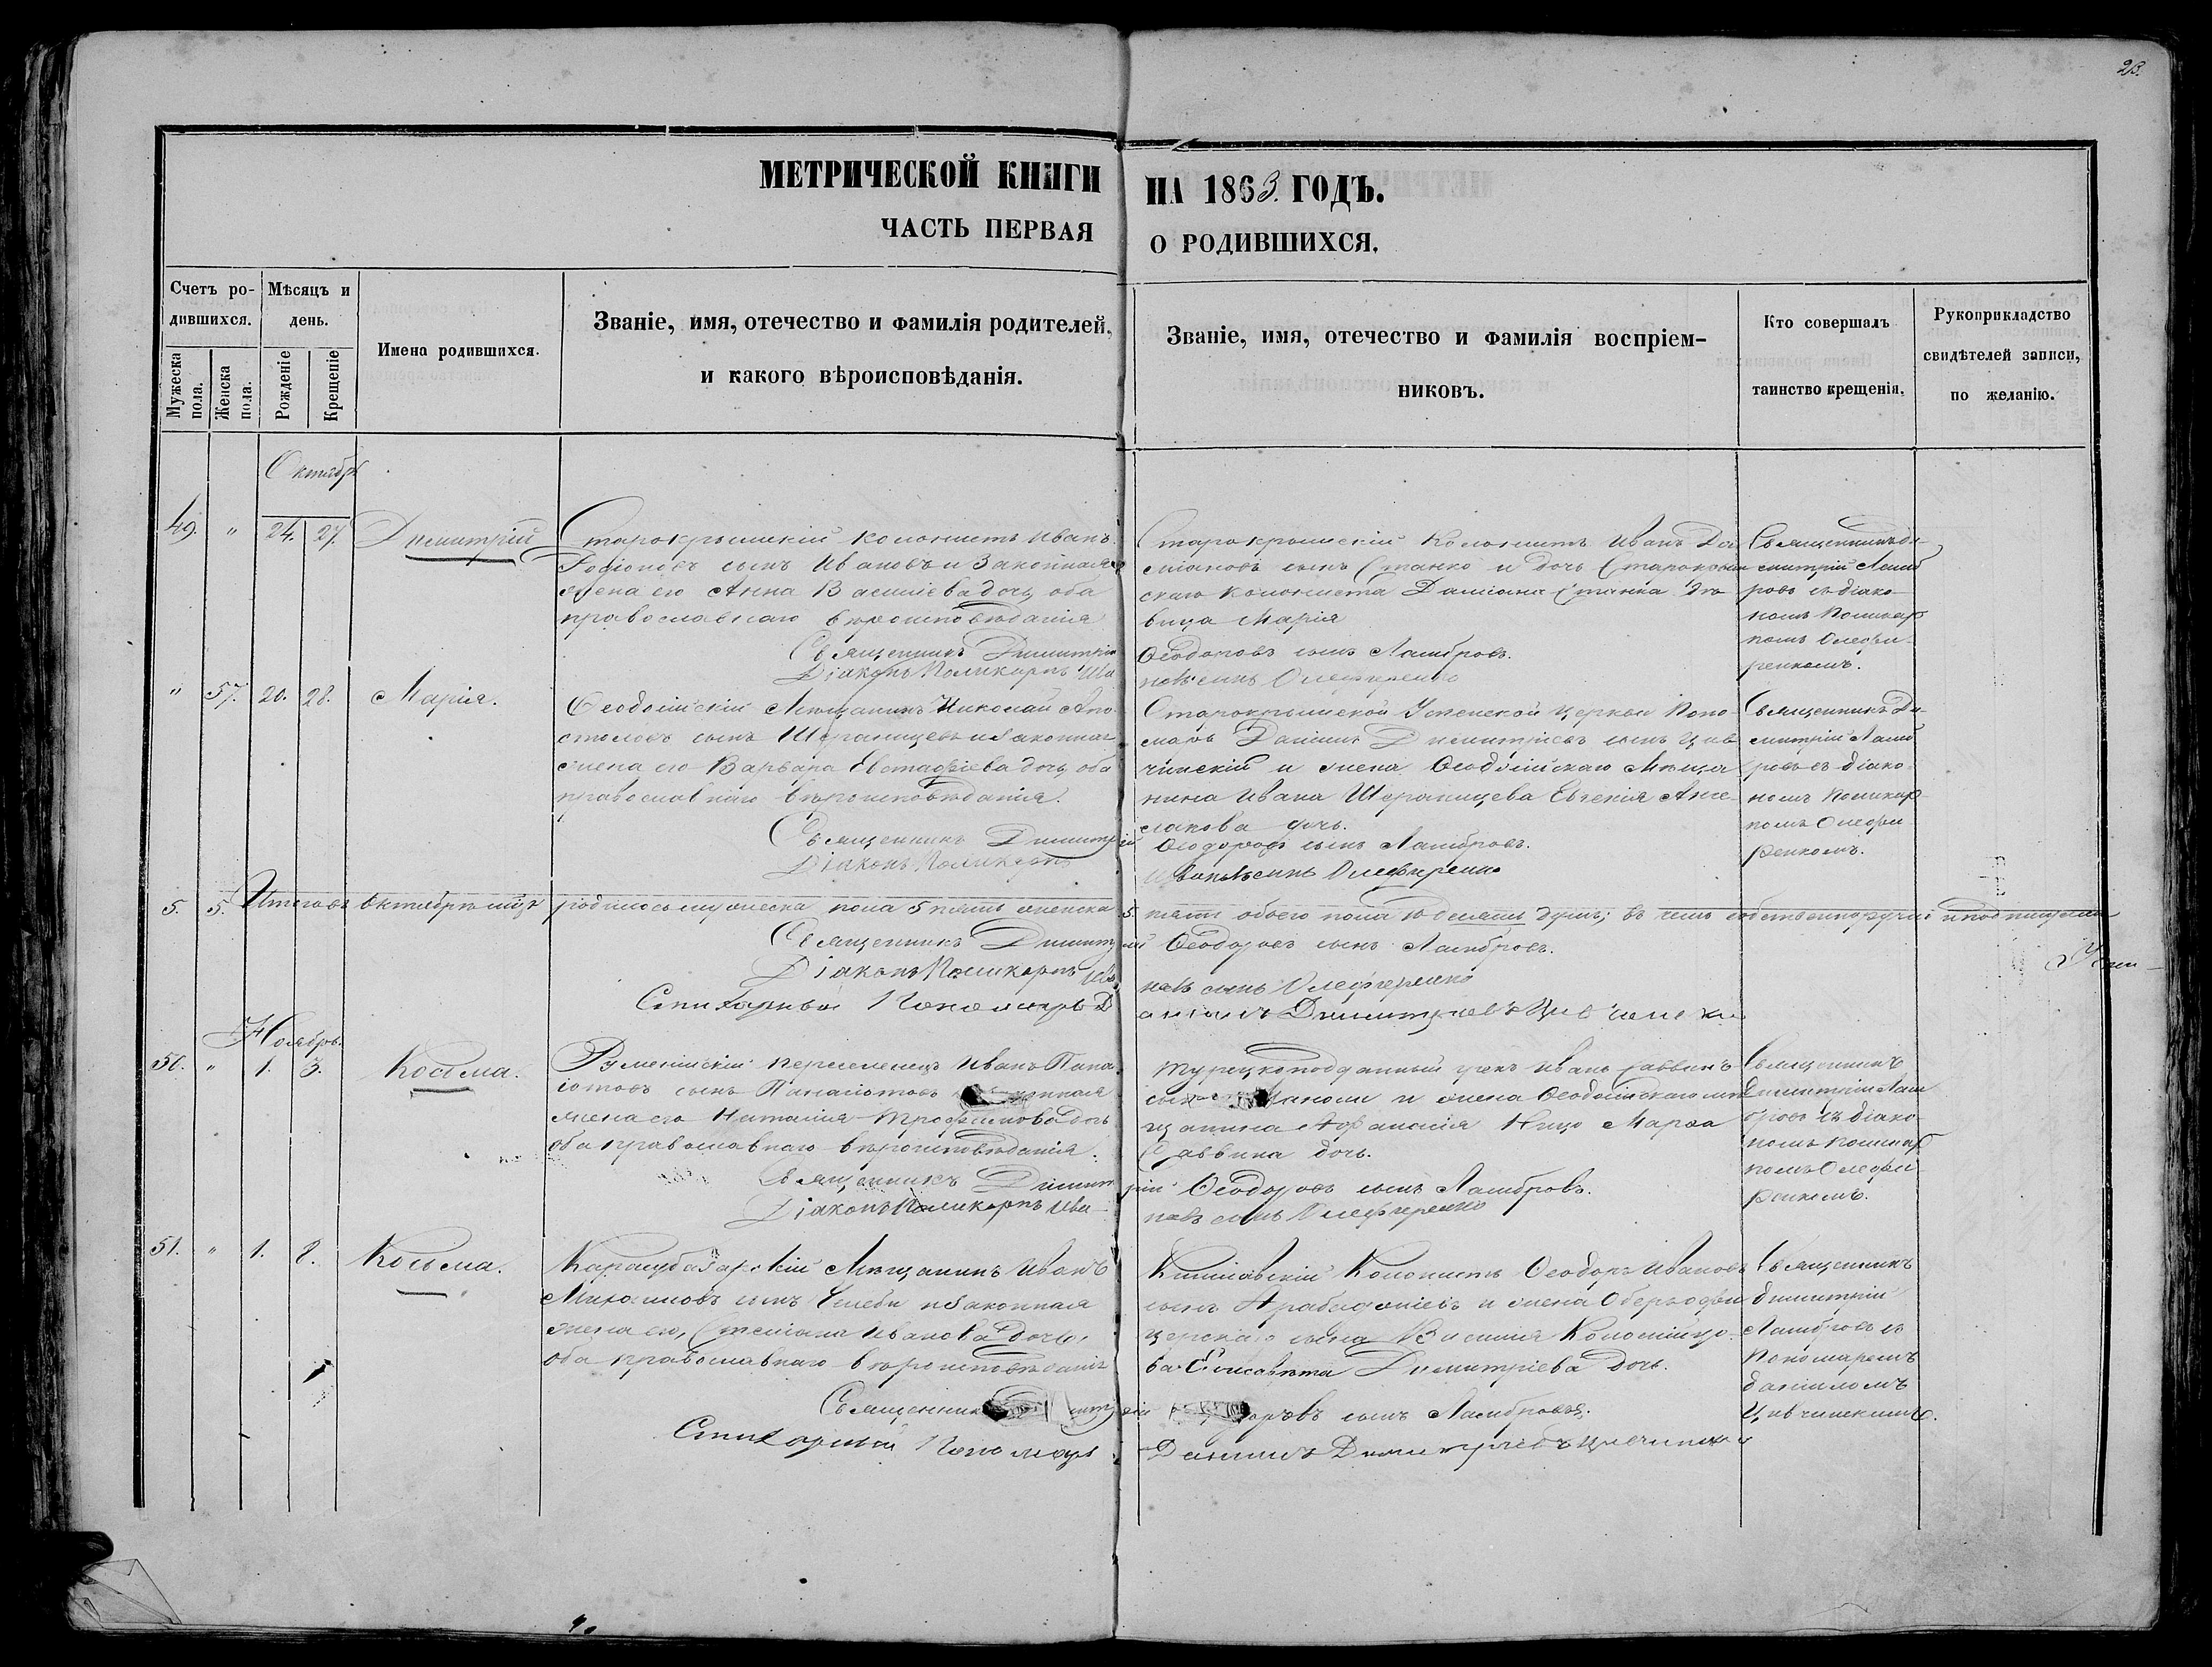 23.
МЕТРИЧЕСКОЙ КНИГИ НА 1863. ГОДЪ.
ЧАСТЬ ПЕРВАЯ О РОДИВШИХСЯ.
Счетъ ро-
дившихся.
Мужеска пола.
Женска пола.
Мѣсяцъ и
день.
Рожденіе
Крещеніе
Имена родившихся.
Званіе, имя, отечество и фамилія родителей,
и какого вѣроисповѣданія.
Званіе, имя, отечество и фамилія воспріем-
никовъ.
Кто совершалъ
таинство крещенія.
Рукоприкладство
свидѣтелей записи,
по желанію.
Октябрь
49. " 24. 27. Димитрій
Старокрымскій колонистъ Иванъ
сынъ Ивановъ и Законная
жена его Анна Василіева дочь, оба
православнаго вѣроисповѣданія
Священникъ Димитрій
Діаконъ Поликарпъ Ива
Старокрымскій Колонистъ Иванъ Да
міановъ сынъ Станко и дочь Старокрым
скаго колониста Даміана Станка дѣ
вица Марія
Ѳеодоровъ сынъ Ламбровъ.
новъ сынъ Олефиренко
Священникъ Ди
митрій Ламб
ровъ съ діако
номъ Поликар
помъ Олефи
ренкомъ.
" 57. 20. 28. Марія.
Ѳеодосійскій Мѣщанинъ Николай Апо
столовъ сынъ и законная
жена его Варвара Евстафіева дочь, оба
православнаго вѣроисповѣданія.
Священникъ Димитрій
Діаконъ Поликарпъ
Старокрымской Успенской церкви Поно
марь Даніилъ Димитріевъ сынъ Цив
чинскій и жена Ѳеодосійскаго Мѣща
нина Ивана Евгенія Анге
лакова дочь.
Ѳеодоровъ сынъ Ламбровъ.
Ивановъ сынъ Олефиренко
Священникъ Ди
митрій Ламб
ровъ съ діако
номъ Поликар
помъ Олефи
ренкомъ.
5. 5. Итого въ октябрѣ м-цѣ родилось мужеска пола 5 пять женска 5. пять обоего пола 10 десять душъ; въ чемъ собственноручно и подписуемся
Священникъ Димитрій Ѳеодоровъ сынъ Ламбровъ.
Діаконъ Поликарпъ Ива
новъ сынъ Олефиренко
Стихарный Пономарь Даніилъ Димитріевъ Цивчинскій
Ноябрь.
50. " 1. 3. Косьма.
переселенецъ Иванъ Пана
іотовъ сынъ Панаіотовъ
жена его Наталія Трофимова дочь
оба православнаго вѣроисповѣданія.
Священникъ Димит
Діаконъ Поликарпъ Ива
Турецкоподданный грекъ Иванъ Саввинъ
сынъ и жена Ѳеодосійскаго мѣ
щанина Аѳанасія Марѳа
Саввина дочь.
рій Ѳеодоровъ сынъ Ламбровъ.
новъ сынъ Олефиренко
Священникъ
Димитрій Лам
бровъ съ діако
номъ Поликар
помъ Олефи
ренкомъ.
51. " 1. 8. Косьма.
Карасубазарскій Мѣщанинъ Иванъ
Михаиловъ сынъ Челеби и Законная
жена его, Стиліана Иванова дочь,
оба православнаго вѣроисповѣданія
Священникъ
Стихарный Пономарь
Кишлавскій Колонистъ Ѳеодоръ Ивановъ
сынъ и жена Оберъофи
церскаго сына Василія Коломійцо
ва Елисавета Димитріева дочь.
сынъ Ламбровъ.
Даніилъ Димитріевъ Цивчинскій
Священникъ
Димитрій
Ламбровъ съ
Пономаремъ
Даніиломъ
Цивчинскимъ.